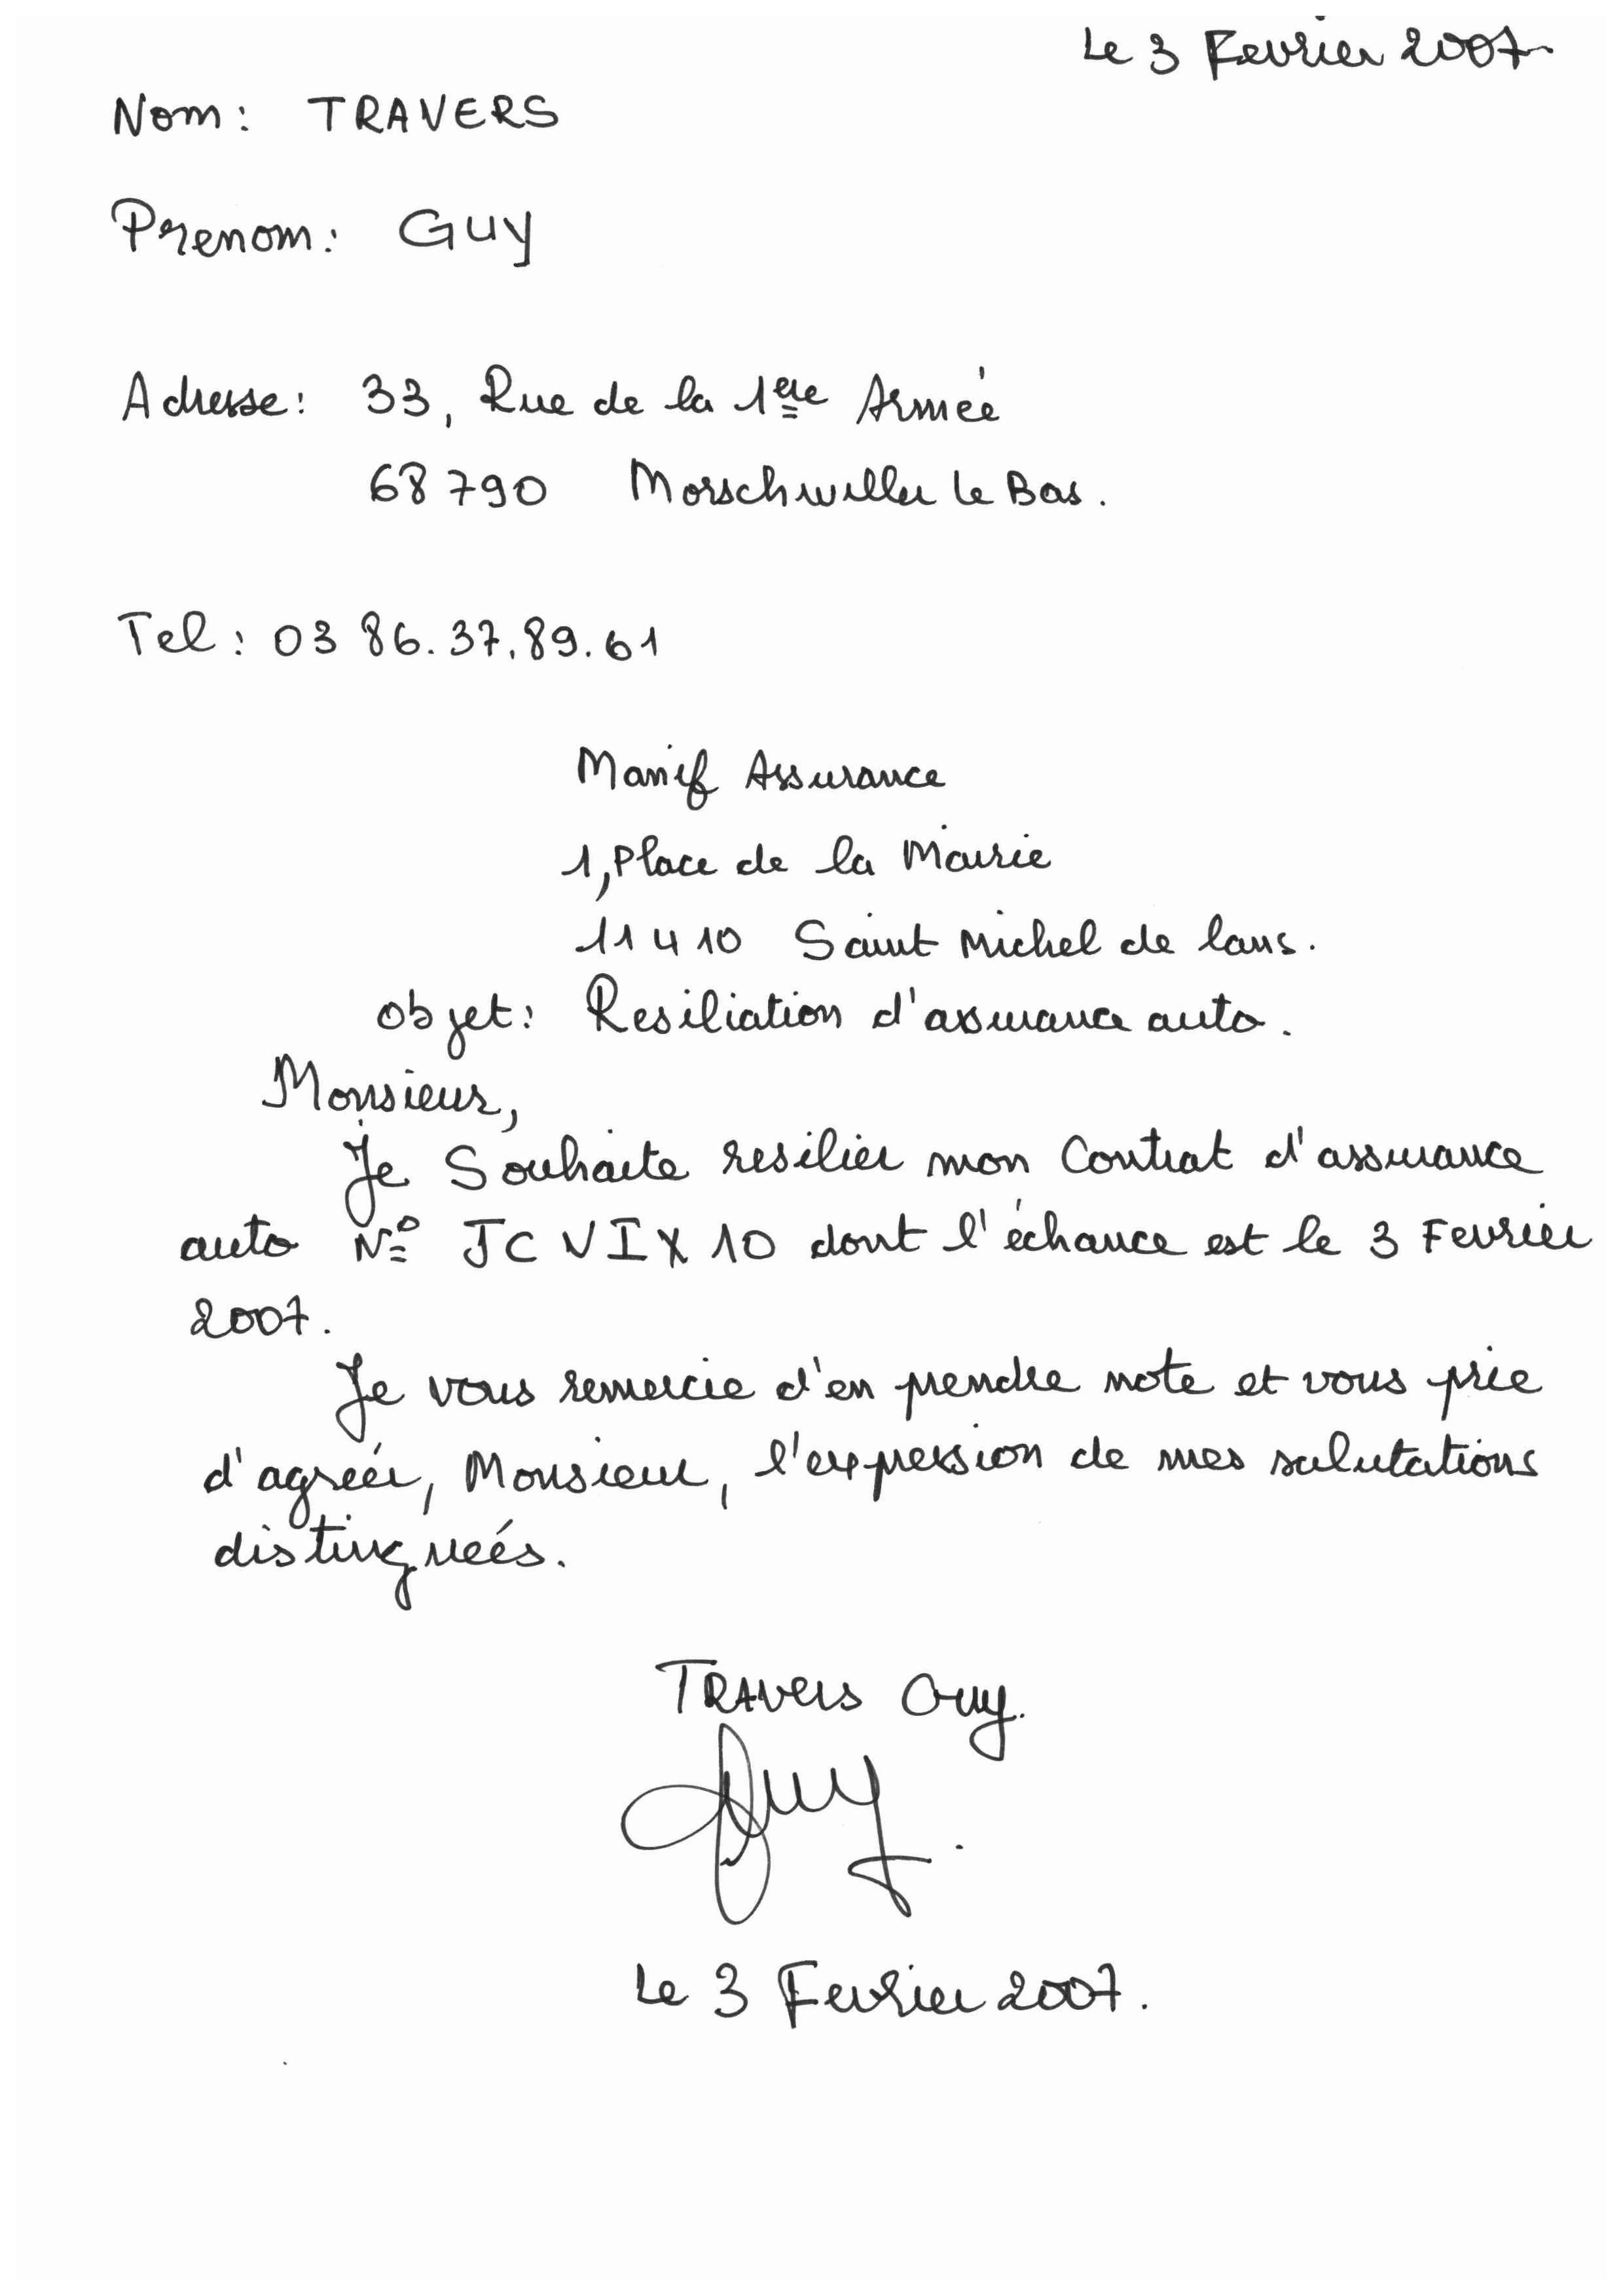 Le 3 Fevrier 2007
Nom: TRAVERS
Prenom: GUY
Adresse: 33, Rue de la 1ère Armée
68790 Morschwiller Le Bas.
Tel: 03 86.37.89.61
Manif Assurance
1, Place de la Mairie
11410 Saint Michel de lans.
objet: Resiliation d'assurance auto.
Monsieur,
Je Souhaite resilier mon Contrat d'assurance
auto N° JCVIX10 dont l'échance est le 3 Fevrier
2007.
Je vous remercie d'en prendre note et vous prie
d'agréer, Monsieur, l'expression de mes salutations
distinguées.
TRAVERS Guy.
Guy.
Le 3 Fevrier 2007.